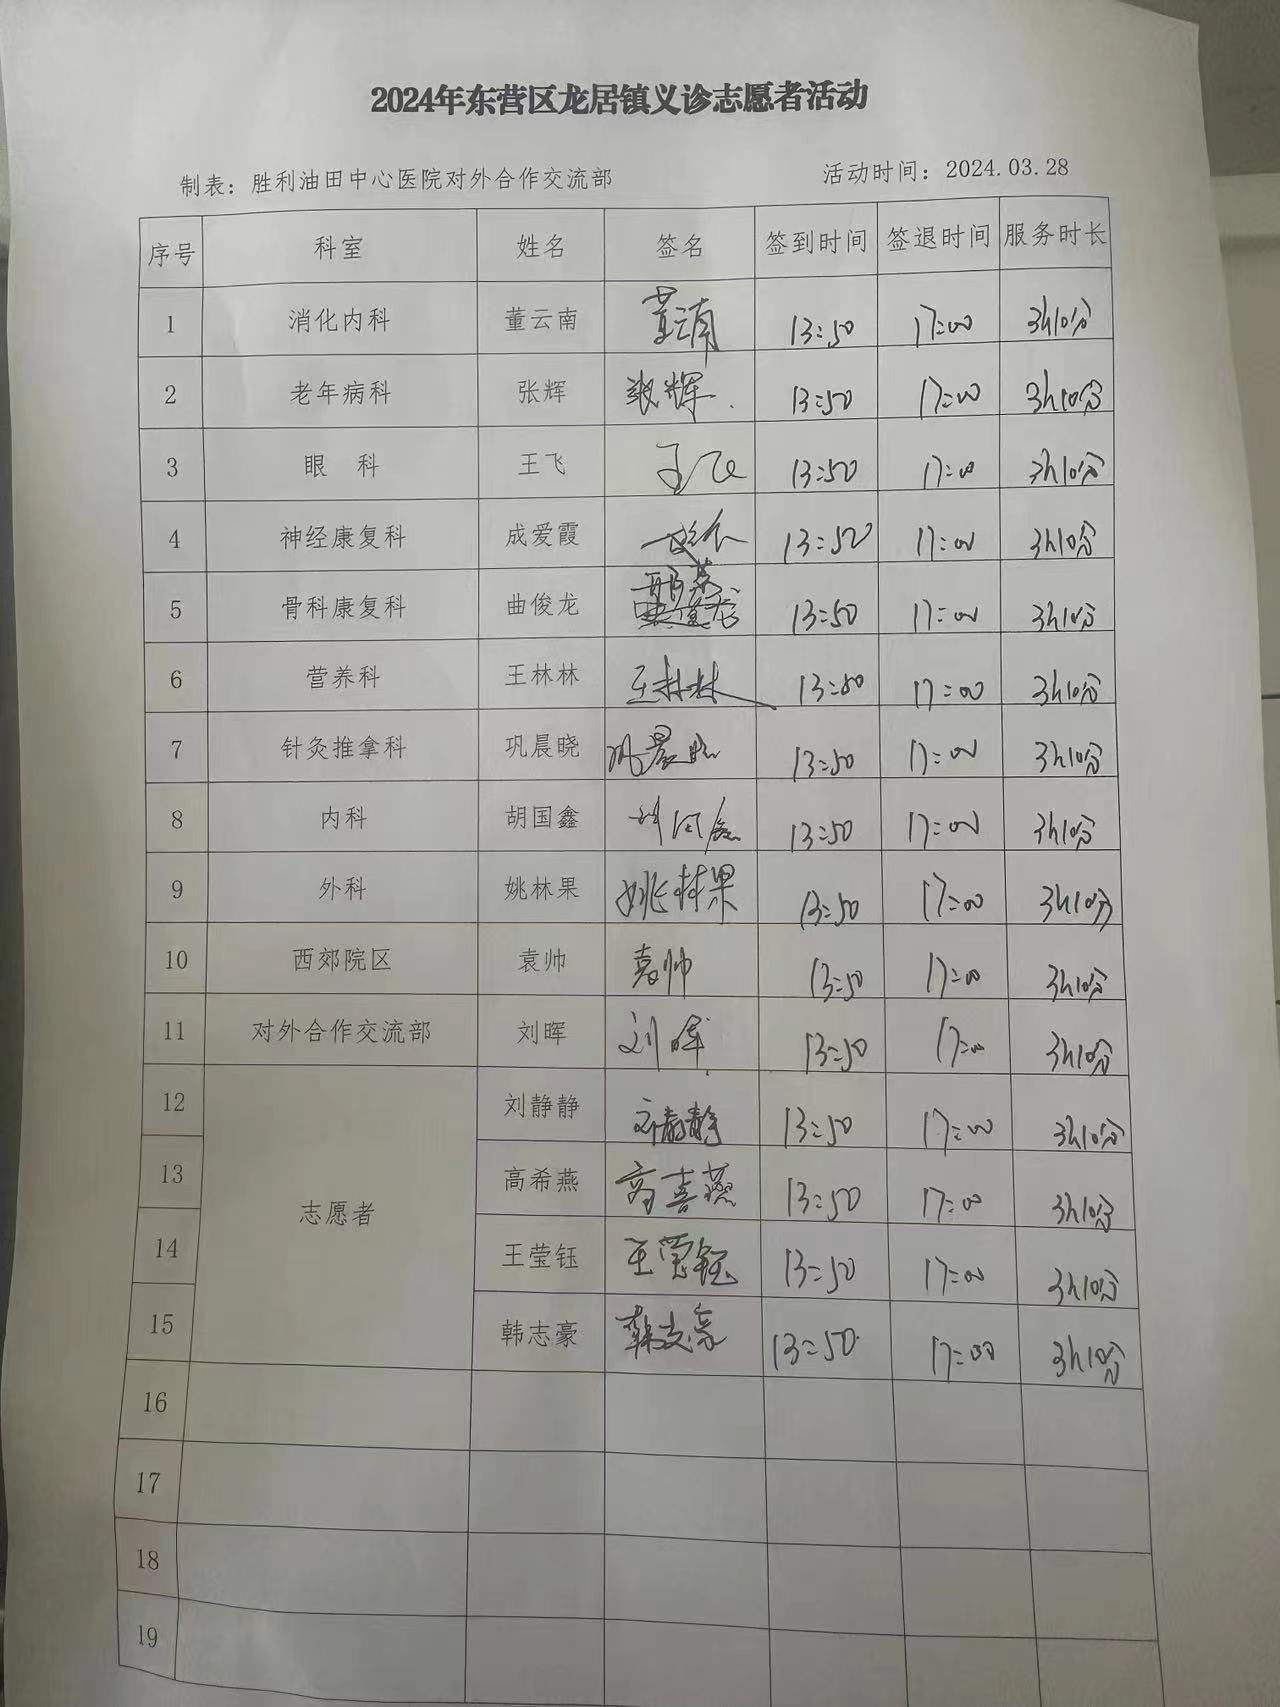 2024年东营区龙居镇义诊志愿者活动
制表：胜利油田中心医院对外合作交流部 活动时间：2024.03.28
序号 科室 姓名 签名 签到时间 签退时间 服务时长
1 消化内科 董云南 董云南 13:50 17:00 3h10分
2 老年病科 张辉 张辉 13:50 17:00 3h10分
3 眼 科 王飞 王飞 13:50 17:00 3h10分
4 神经康复科 成爱霞 13:50 17:00 3h10分
5 骨科康复科 曲俊龙 13:50 17:00 3h10分
6 营养科 王林林 王林林 13:50 17:00 3h10分
7 针灸推拿科 巩晨晓 巩晨晓 13:50 17:00 3h10分
8 内科 胡国鑫 胡国鑫 13:50 17:00 3h10分
9 外科 姚林果 姚林果 13:50 17:00 3h10分
10 西郊院区 袁帅 袁帅 13:50 17:00 3h10分
11 对外合作交流部 刘晖 刘晖 13:50 17:00 3h10分
12 志愿者 刘静静 刘静静 13:50 17:00 3h10分
13 高希燕 高喜燕 13:50 17:00 3h10分
14 王莹钰 王莹钰 13:50 17:00 3h10分
15 韩志豪 韩志豪 13:50 17:00 3h10分
16
17
18
19